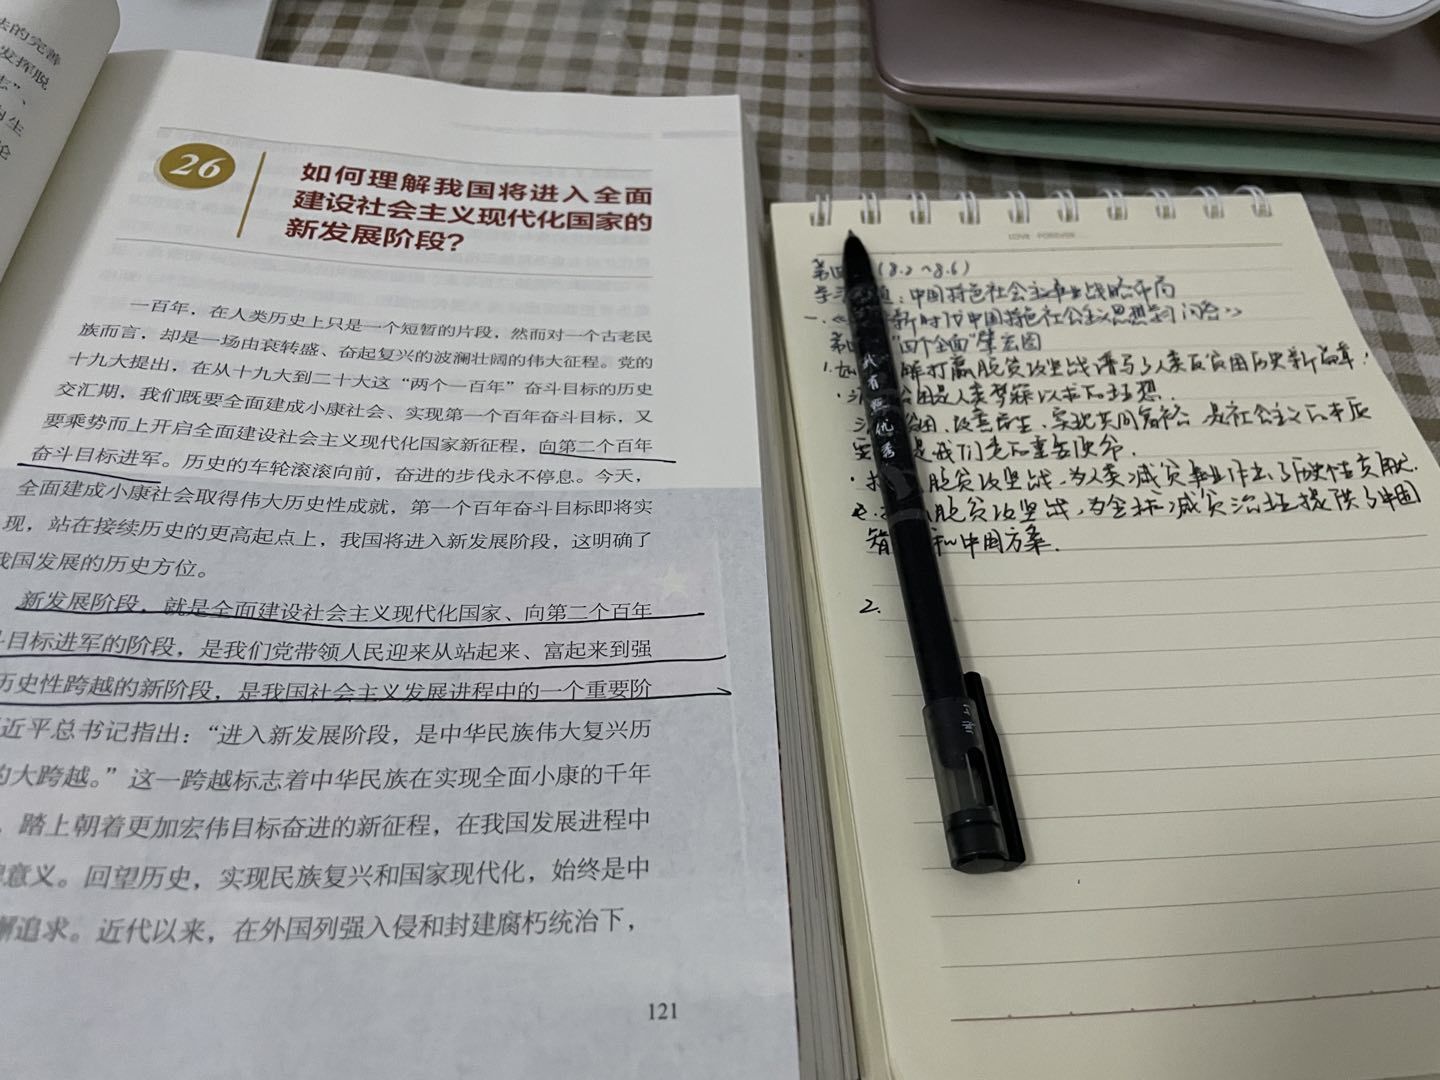 法的完善
发挥脱
志”、
向生
论
26
如何理解我国将进入全面
建设社会主义现代化国家的
新发展阶段？
一百年，在人类历史上只是一个短暂的片段，然而对一个古老民
族而言，却是一场由衰转盛、奋起复兴的波澜壮阔的伟大征程。党的
十九大提出，在从十九大到二十大这“两个一百年”奋斗目标的历史
交汇期，我们既要全面建成小康社会、实现第一个百年奋斗目标，又
要乘势而上开启全面建设社会主义现代化国家新征程，向第二个百年
奋斗目标进军。历史的车轮滚滚向前，奋进的步伐永不停息。今天，
全面建成小康社会取得伟大历史性成就，第一个百年奋斗目标即将实
现，站在接续历史的更高起点上，我国将进入新发展阶段，这明确了
我国发展的历史方位。
新发展阶段，就是全面建设社会主义现代化国家、向第二个百年
斗目标进军的阶段，是我们党带领人民迎来从站起来、富起来到强
历史性跨越的新阶段，是我国社会主义发展进程中的一个重要阶
近平总书记指出：“进入新发展阶段，是中华民族伟大复兴历
的大跨越。”这一跨越标志着中华民族在实现全面小康的千年
，踏上朝着更加宏伟目标奋进的新征程，在我国发展进程中
意义。回望历史，实现民族复兴和国家现代化，始终是中
懈追求。近代以来，在外国列强入侵和封建腐朽统治下，
121
LOVE FOREVER
第四 (8.2～8.6)
学习 题：中国特色社会主义事业战略布局
一、《 新时代中国特色社会主义思想学习问答》
第四 “四个全面”擘宏图
1. 如 解打赢脱贫攻坚战谱写了人类反贫困历史新篇章？
· 消 贫困是人类梦寐以求的理想.
消 贫困、改善民生、实现共同富裕, 是社会主义的本质
要 是我们党的重要使命.
· 打 脱贫攻坚战, 为人类减贫事业作出了历史性贡献.
脱贫攻坚战, 为全球减贫治理提供了中国
智 和中国方案.
2.
我有点优秀